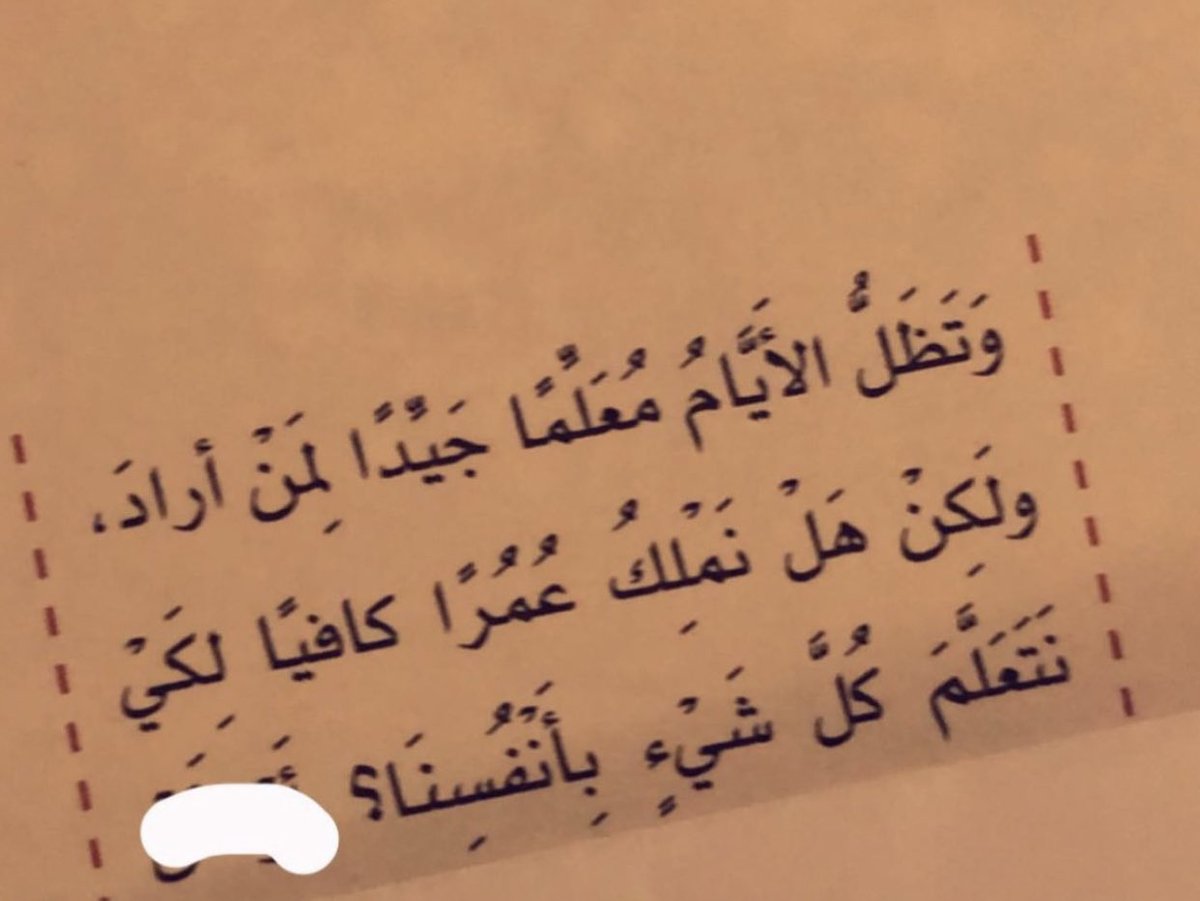 وَتَظَلُّ الأَيَّامُ مُعَلِّمًا جَيِّدًا لِمَنْ أرادَ،
ولَكِنْ هَلْ نَمْلِكُ عُمُرًا كافيًا لكَيْ
نَتَعَلَّمَ كُلَّ شَيْءٍ بِأَنْفُسِنَا؟